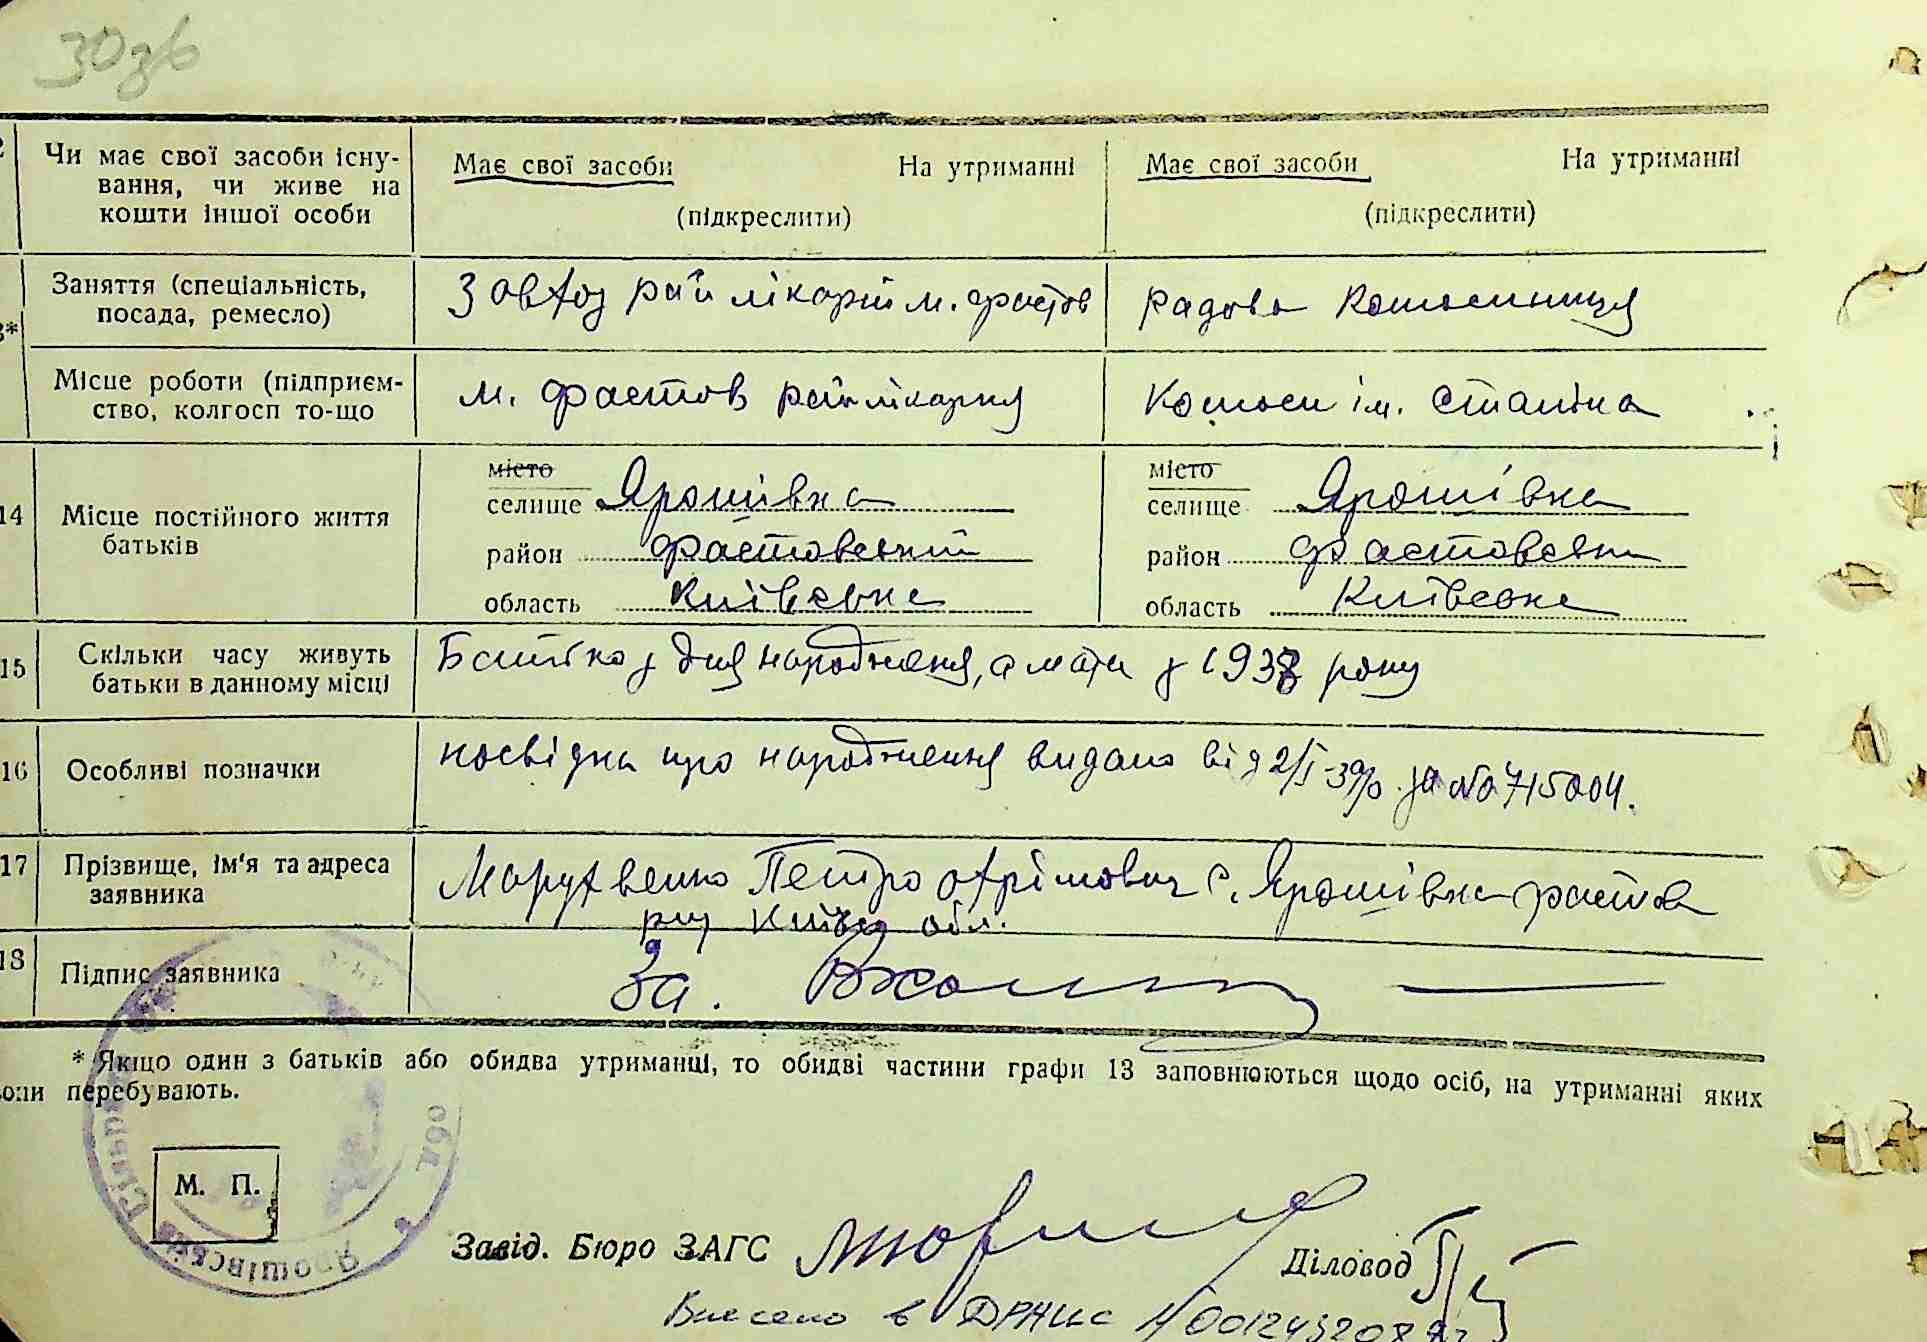 30зв
2 Чи має свої засоби існу- Має свої засоби На утриманні Має свої засоби На утриманні
вання, чи живе на
кошти іншої особи (підкреслити) (підкреслити)
Заняття (спеціальність, Завгоз рай лікарні м. фастов радова колгосниця
3* посада, ремесло)
Місце роботи (підприєм- м. фастов райлікарня Колгосп ім. Сталіна
ство, колгосп то-що
місто місто
селище Ярошівка селище Ярошівка
14 Місце постійного життя
батьків район фастовський район фастовськи
область Київська область Київська
15 Скільки часу живуть Батько з дня народження, а мати з 1938 року
батьки в данному місці
16 Особливі позначки посвідка про народження видана від 2/I-39р. за № 715004.
17 Прізвище, ім'я та адреса Петро с. Ярошівка фастов
заявника обл.
18 Підпис заявника За.
* Якщо один з батьків або обидва утриманці, то обидві частини графи 13 заповнюються щодо осіб, на утриманні яких
вони перебувають.
М. П.
Ярошівська Сільра обл
Завід. Бюро ЗАГС Діловод
Внесено в ДРАЦС